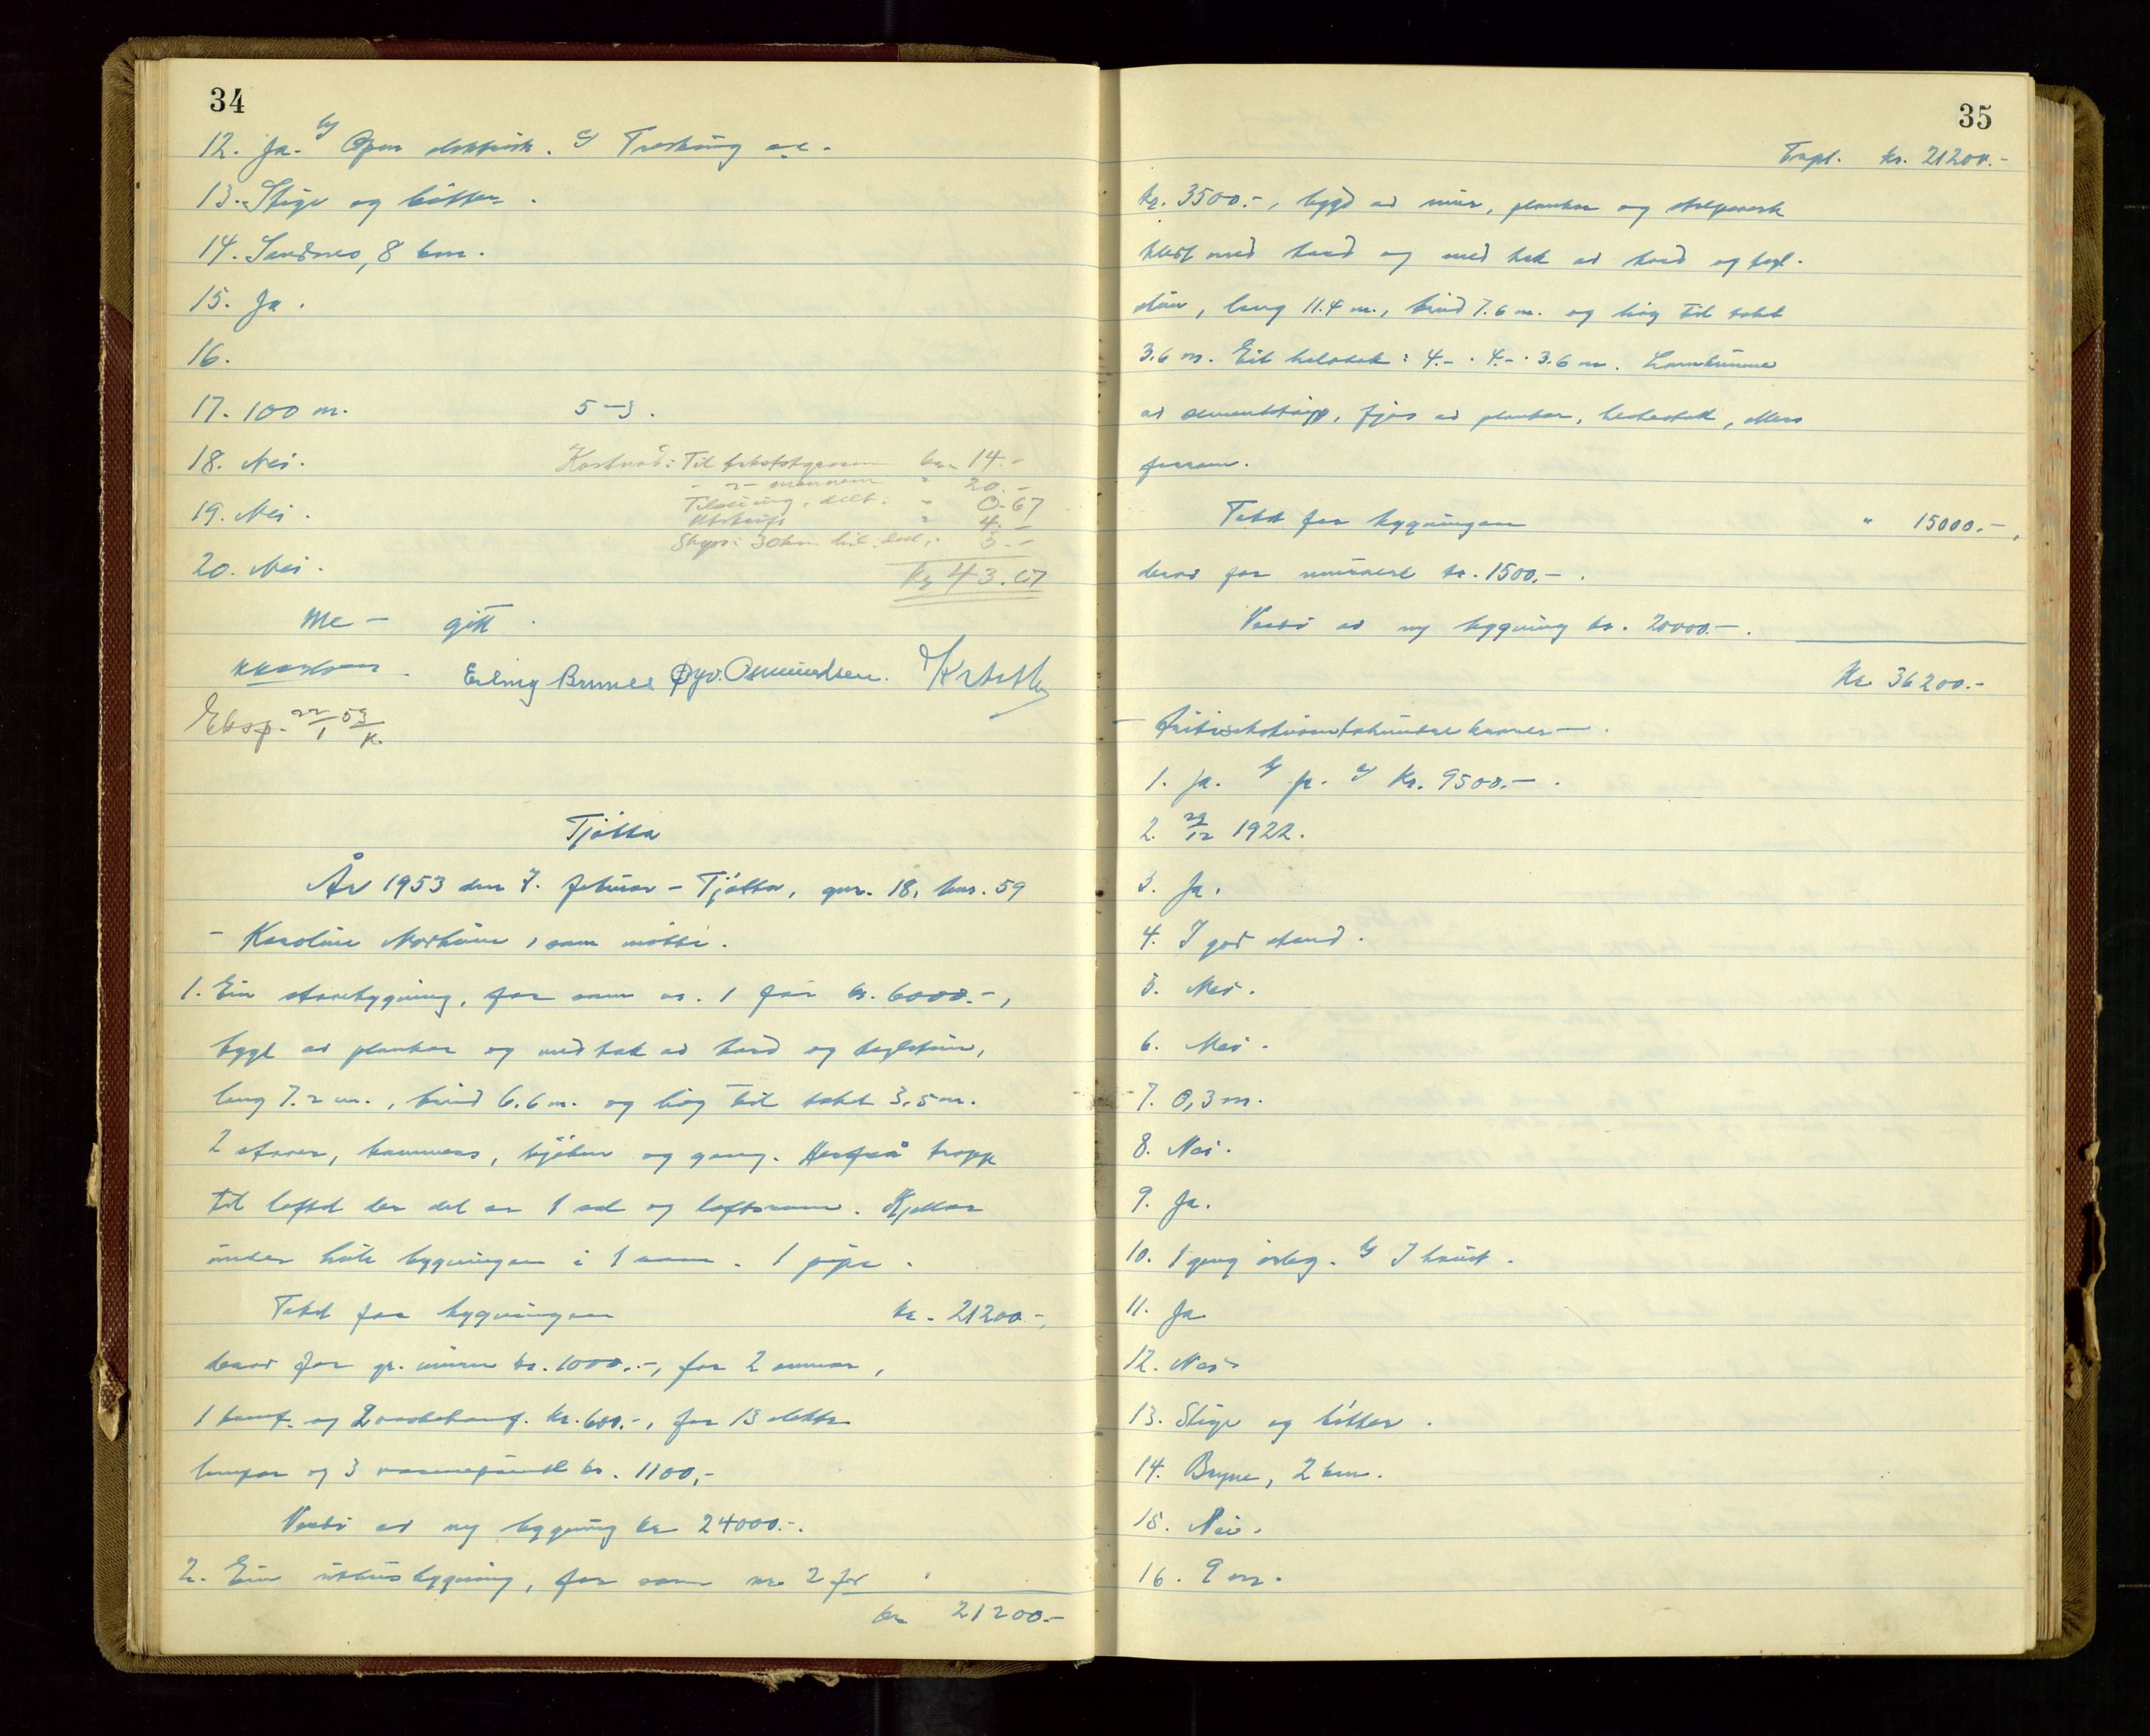 34
12. Ja. b) Open elektrisk. c) Tresking o.l.
13. Stige og bøtter.
14. Sandnes, 8 km.
15. Ja.
16.
17. 100 m. 5-3.
18. Nei.
Kostnad: Til takststyraren kr. 14.-
- "- mennene " 20.-
19. Nei.
Tilseiing, delt. " 0.67
Utskrift " 4.-
Skyss: 30 km bil, delt, " 5.-
20. Nei.
kr 43.67
Me — gitt.
Erling Brunes Øyv. Osmundsen.
Eksp. 22/1 53
Tjøtta
År 1953 den 7. februar – Tjøtta, gnr. 18, bnr. 59
– Karoline Norheim, som møtte.
1. Ein stovebygning, før som nr. 1 for kr. 6000.-,
bygt av plankar og med tak av bord og teglstein,
lang 7.2 m., breid 6.6 m. og høg til takt 3,5 m.
2 stover, kammers, kjøken og gang. Herfrå tropp
til loftet der det er 1 sal og loftsrom. Kjellar
under heile bygningen i 1 rom. 1 pipe.
Takst for bygningen kr. 21200.-,
derav for gr. muren kr. 1000.-, for 2 omnar,
1 komf. og 2 vaskekomf. kr. 600.-, for 13 elektr.
lampar og 3 varmepunkt kr. 1100,-
Verdi av ny bygning kr 24000.-.
2. Ein uthusbygning, før som nr. 2 for
kr 21200.-
35
Trspt. kr. 21200.-
kr. 3500.-, bygd av mur, plankar og stolpeverk
kledt med bord og med tak av bord og tegl-
stein, lang 11.4 m., breid 7.6 m. og høg til takt
3.6 m. Eit halvtak: 4.- · 4.- · 3.6 m. Landkummen
av sementstøyp, fjos av plankar, hestestall, ellers
forrom.
Takst for bygningen " 15000.-,
derav for murverk kr. 1500.-.
Verdi av ny bygning kr. 20000.-.
Kr 36200.-
– Trittisekstusentohundre kroner —.
1. Ja. b) Ja. c) Kr. 9500.-.
2. 29/12 1922.
3. Ja.
4. I god stand.
5. Nei.
6. Nei.
7. 0,3 m.
8. Nei.
9. Ja.
10. 1 gong årleg. b) I haust.
11. Ja
12. Nei
13. Stige og bøtter.
14. Bryne, 2 km.
15. Nei.
16. 9 m.